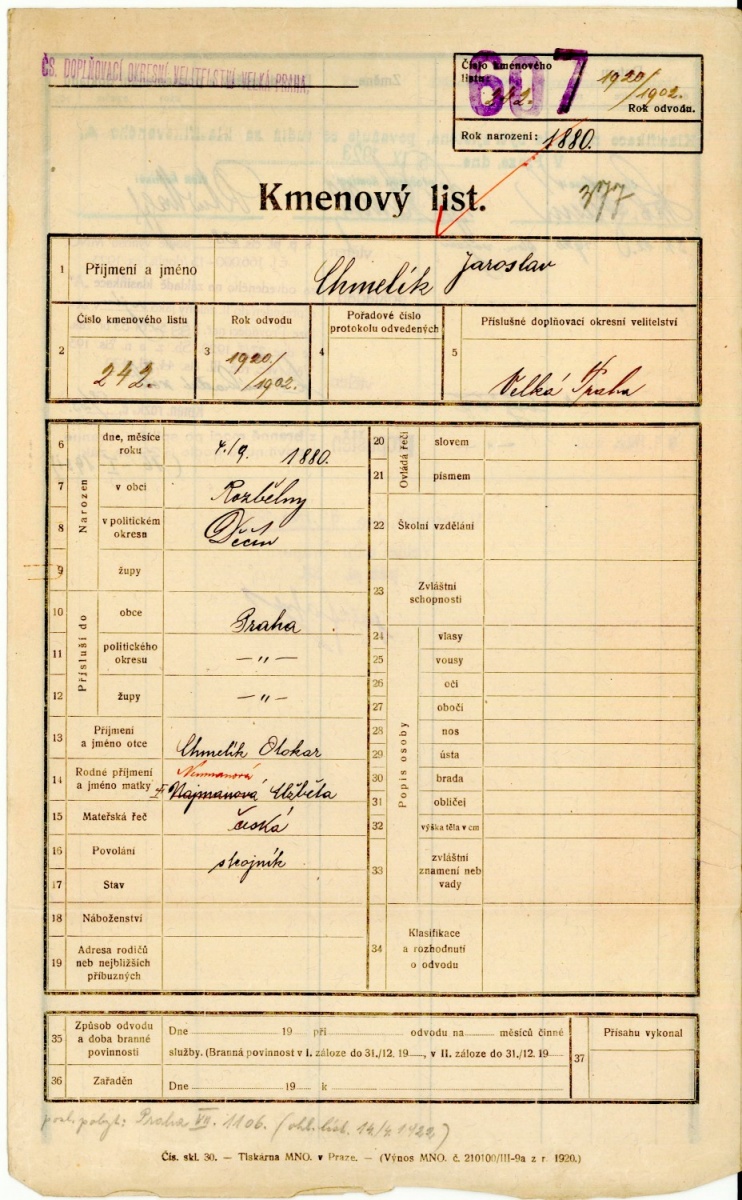 ČS. DOPLŇOVACÍ OKRESNÍ VELITELSTVÍ VELKÁ PRAHA.
607
Číslo kmenového listu: 242.
1920/1902.
Rok odvodu.
Rok narození: 1880.
Kmenový list.
377
1 Příjmení a jméno Chmelík Jaroslav
2 Číslo kmenového listu 242.
3 Rok odvodu 1920/1902.
4 Pořadové číslo protokolu odvedených
5 Příslušné doplňovací okresní velitelství Velká Praha
Narozen
6 dne, měsíce roku 4./9. 1880.
7 v obci Rozbělny
8 v politickém okresu Děčín
9 župy
Přísluší do
10 obce Praha
11 politického okresu — „ —
12 župy — „ —
13 Příjmení a jméno otce Chmelík Otokar
Neumanová
14 Rodné příjmení a jméno matky Najmanová Alžběta
15 Mateřská řeč česká
16 Povolání strojník
17 Stav
18 Náboženství
19 Adresa rodičů neb nejbližších příbuzných
Ovládá řeči
20 slovem
21 písmem
22 Školní vzdělání
23 Zvláštní schopnosti
Popis osoby
24 vlasy
25 vousy
26 oči
27 obočí
28 nos
29 ústa
30 brada
31 obličej
32 výška těla v cm
33 zvláštní znamení neb vady
34 Klasifikace a rozhodnutí o odvodu
35 Způsob odvodu a doba branné povinnosti
Dne 19 při odvodu na měsíců činné
služby. (Branná povinnost v I. záloze do 31./12. 19 , v II. záloze do 31./12. 19
36 Zařaděn
Dne 19 k
37 Přísahu vykonal
posl. pobyt: Praha VII. 1106. (ohl. líst. 14/4. 1922)
Čís. skl. 30. — Tiskárna MNO. v Praze. — (Výnos MNO. č. 210100/III-9a z r. 1920.)